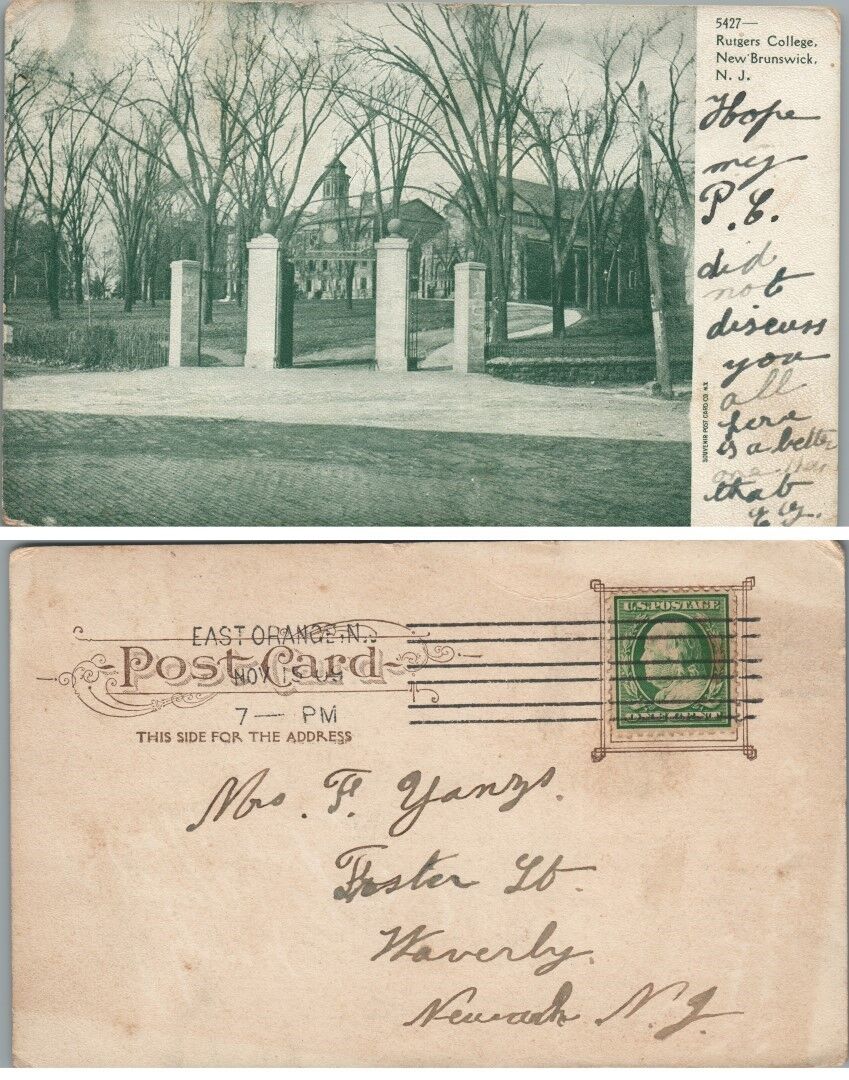 5427—
Rutgers College,
New Brunswick,
N. J.
Hope
my
P.C.
did
not
discuss
you
all
here
is a better
one than
that
SOUVENIR POST CARD CO. N.Y.
U.S. POSTAGE
EAST ORANGE, N.J.
Post Card
NOV 15 09
7 — PM
THIS SIDE FOR THE ADDRESS
Mrs. F. Yanzs.
Foster St.
Waverly.
Newark N. J.